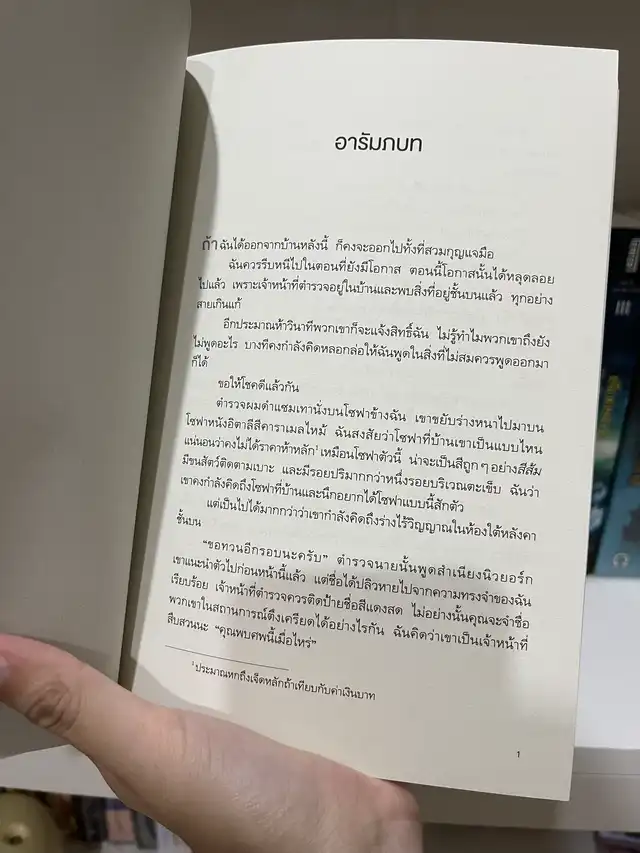 อารัมภบท
ถ้าฉันได้ออกจากบ้านหลังนี้ ก็คงจะออกไปทั้งที่สวมกุญแจมือ
ฉันควรรีบหนีไปในตอนที่ยังมีโอกาส ตอนนี้โอกาสนั้นได้หลุดลอย
ไปแล้ว เพราะเจ้าหน้าที่ตำรวจอยู่ในบ้านและพบสิ่งที่อยู่ชั้นบนแล้ว ทุกอย่าง
สายเกินแก้
อีกประมาณห้าวินาทีพวกเขาก็จะแจ้งสิทธิ์ฉัน ไม่รู้ทำไมพวกเขาถึงยัง
ไม่พูดอะไร บางทีคงกำลังคิดหลอกล่อให้ฉันพูดในสิ่งที่ไม่สมควรพูดออกมา
ก็ได้
ขอให้โชคดีแล้วกัน
ตำรวจผมดำแซมเทานั่งบนโซฟาข้างฉัน เขาขยับร่างหนาไปมาบน
โซฟาหนังอิตาลีสีคาราเมลไหม้ ฉันสงสัยว่าโซฟาที่บ้านเขาเป็นแบบไหน
แน่นอนว่าคงไม่ได้ราคาห้าหลัก¹ เหมือนโซฟาตัวนี้ น่าจะเป็นสีถูกๆ อย่างสีส้ม
มีขนสัตว์ติดตามเบาะ และมีรอยปริมากกว่าหนึ่งรอยบริเวณตะเข็บ ฉันว่า
เขาคงกำลังคิดถึงโซฟาที่บ้านและนึกอยากได้โซฟาแบบนี้สักตัว
แต่เป็นไปได้มากกว่าว่าเขากำลังคิดถึงร่างไร้วิญญาณในห้องใต้หลังคา
ชั้นบน
"ขอทวนอีกรอบนะครับ" ตำรวจนายนั้นพูดสำเนียงนิวยอร์ก
เขาแนะนำตัวไปก่อนหน้านี้แล้ว แต่ชื่อได้ปลิวหายไปจากความทรงจำของฉัน
เรียบร้อย เจ้าหน้าที่ตำรวจควรติดป้ายชื่อสีแดงสด ไม่อย่างนั้นคุณจะจำชื่อ
พวกเขาในสถานการณ์ตึงเครียดได้อย่างไรกัน ฉันคิดว่าเขาเป็นเจ้าหน้าที่
สืบสวนนะ "คุณพบศพนี้เมื่อไหร่"
¹ ประมาณหกถึงเจ็ดหลักถ้าเทียบกับค่าเงินบาท
1